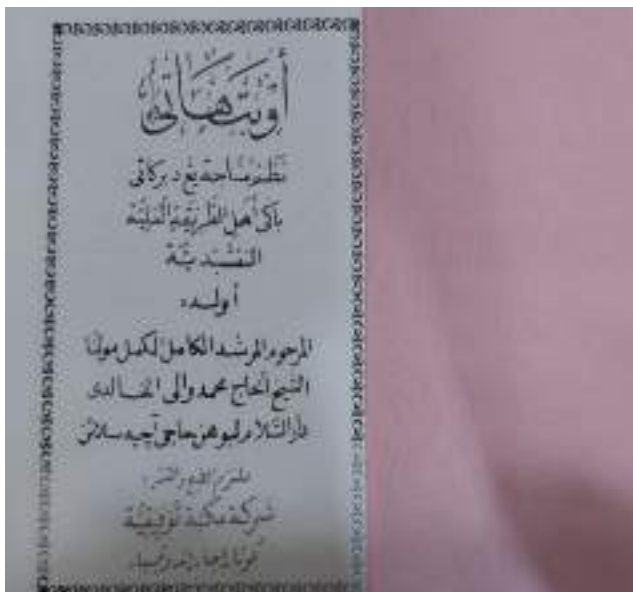 أوبت هاتي
نظم ساحة يغ دبركاتي
باكي أهل الطريقة العلية
النقشبندية
أوليه
المرحوم المرشد الكامل المكمل مولانا
الشيخ الحاج محمد والي الخالدي
دارالسلام لبوهن حاجي أچيه سلاتن
شركة مكتبة توفيقية